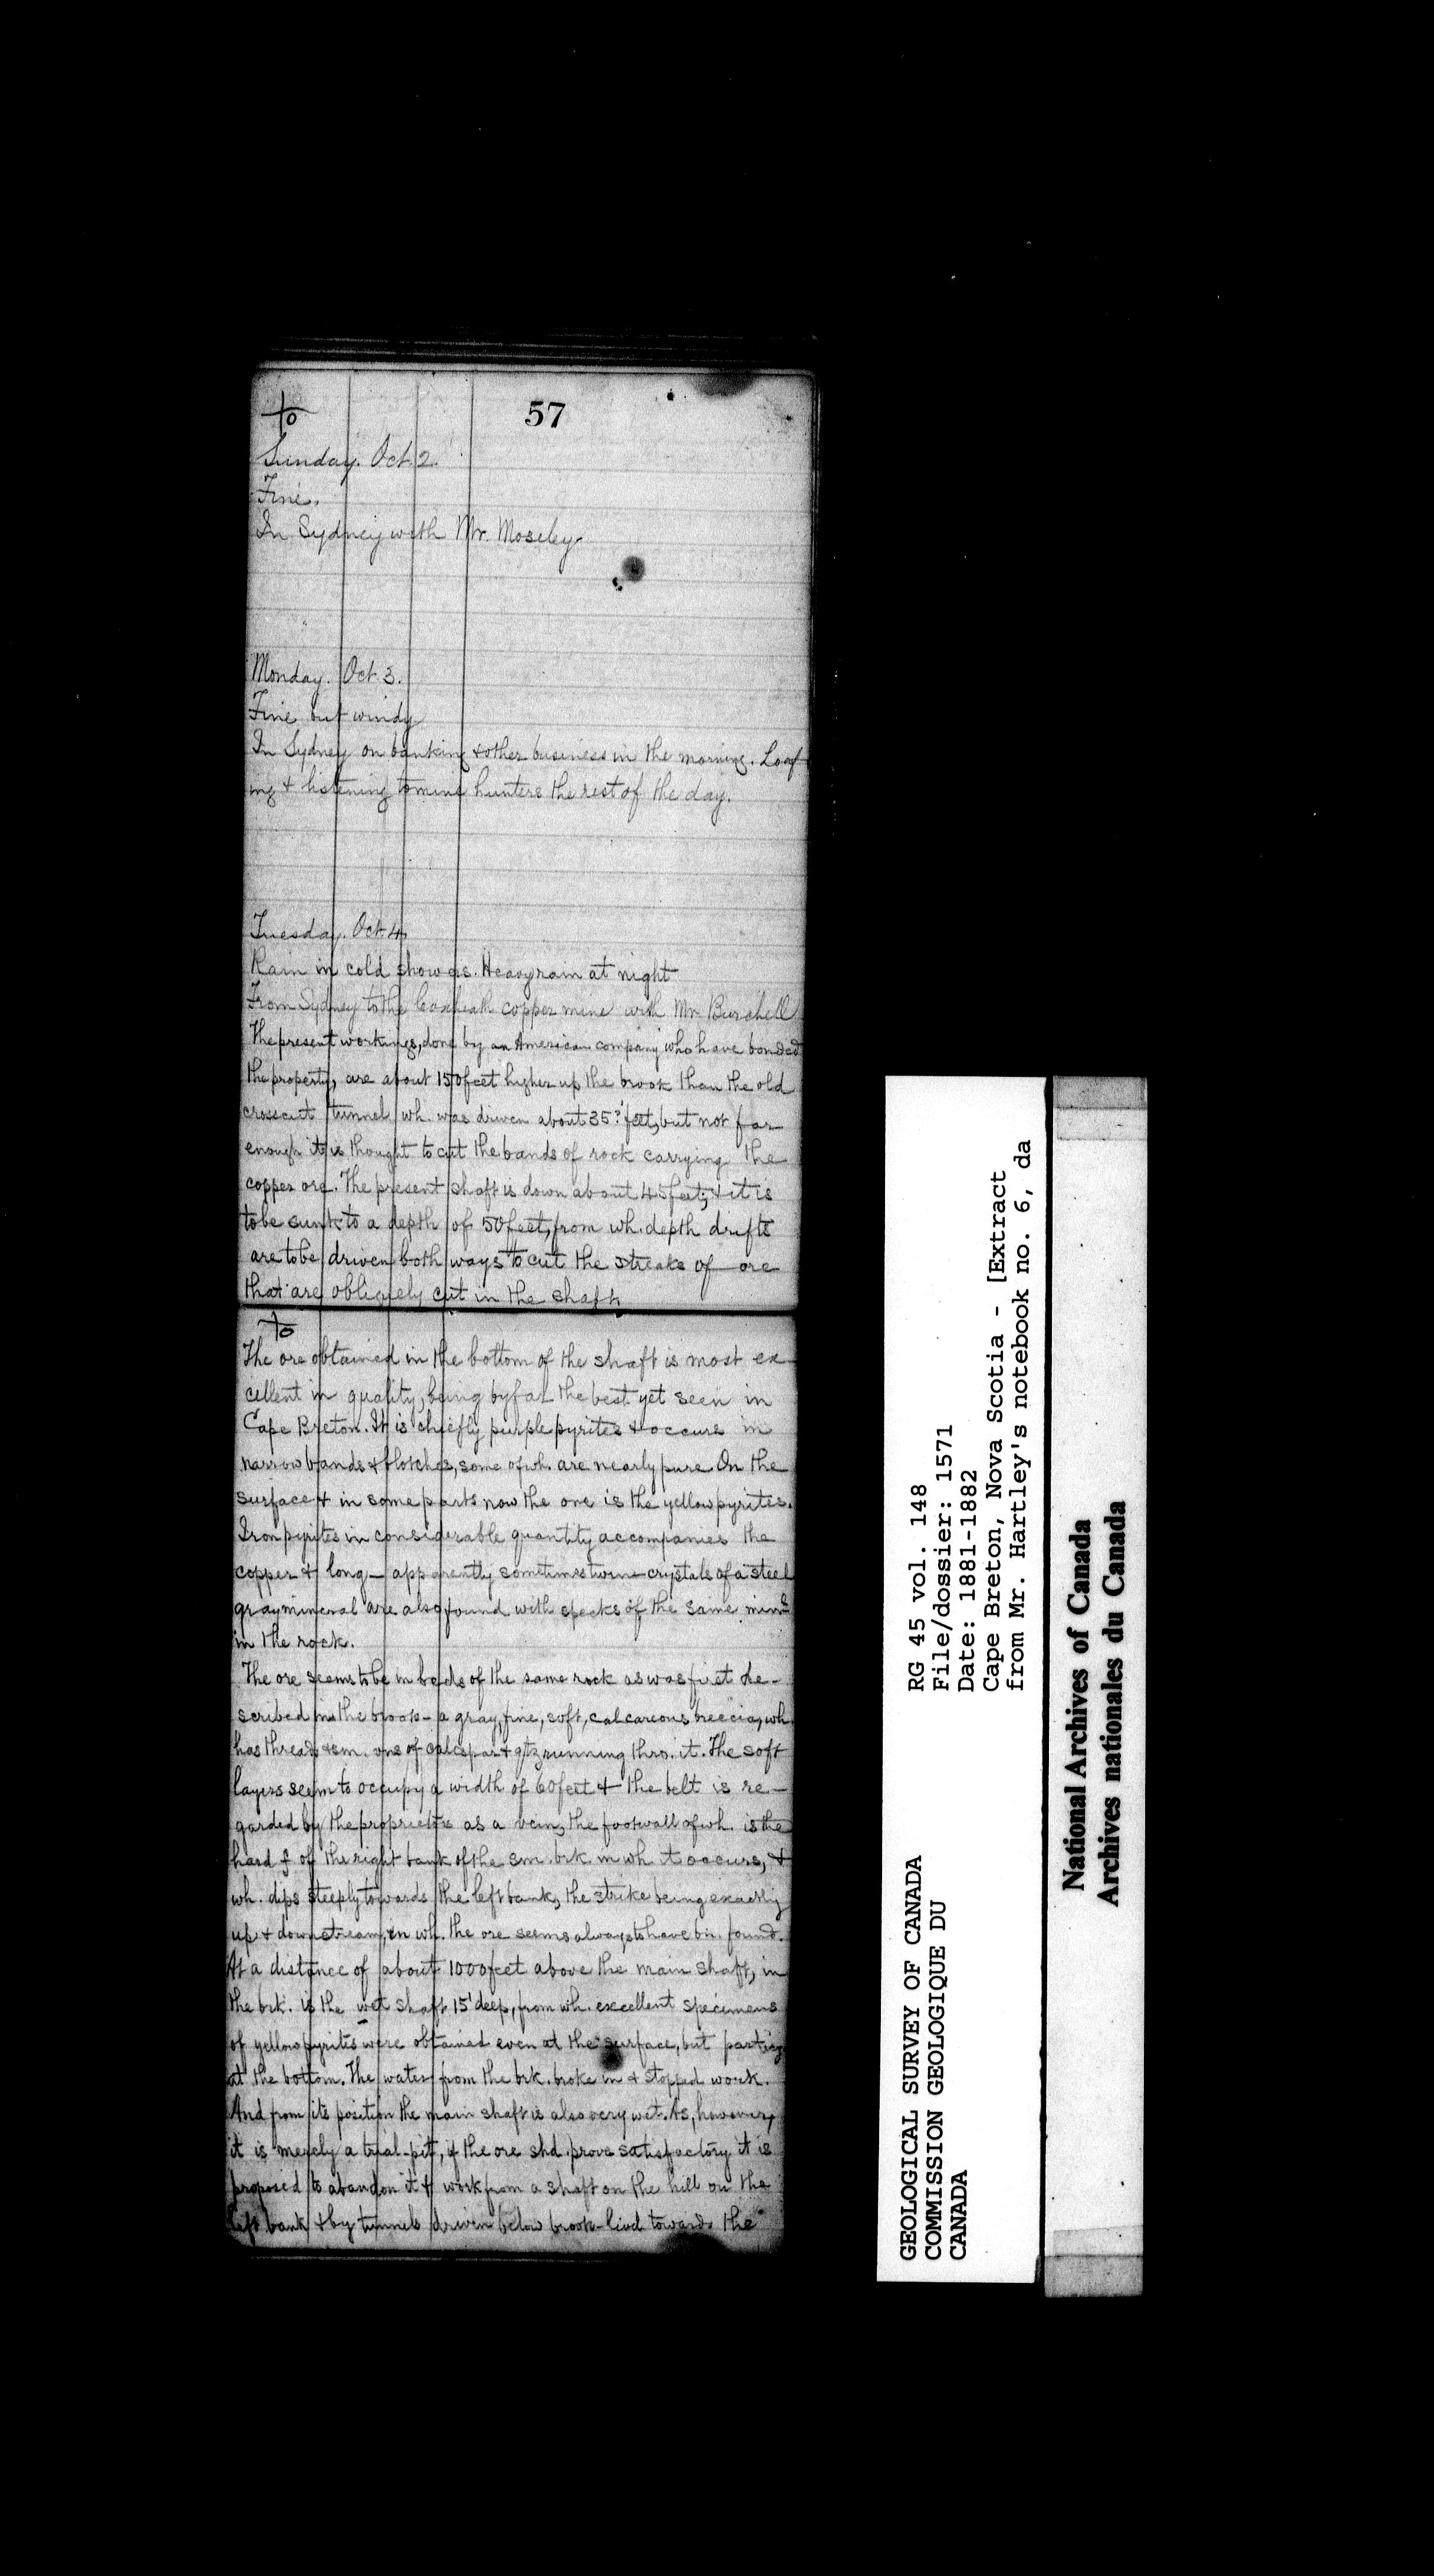 57
Sunday. Oct. 2.
Fine.
In Sydney with Mr. Moseley
Monday. Oct. 3.
Fine but windy
In Sydney on banking & other business in the morning. Loaf
ing & listening to mine hunters the rest of the day.
Tuesday. Oct. 4
Rain in cold showers. Heavy rain at night
From Sydney to the Coxheath copper mine with Mr. Burchell
The present workings, done by an American company who have bonded
the property, are about 150 feet higher up the brook than the old
crosscut tunnel wh. was driven about 35? feet, but not far
enough it is thought to cut the bands of rock carrying the
copper ore. The present shaft is down about 45 feet, & it is
to be sunk to a depth of 50 feet, from wh. depth drifts
are to be driven both ways to cut the streaks of ore
that are obliquely cut in the shaft
The ore obtained in the bottom of the shaft is most ex-
cellent in quality, being by far the best yet seen in
Cape Breton. It is chiefly purple pyrites & occurs in
narrow bands & blotches, some of wh. are nearly pure. On the
surface & in some parts now the ore is the yellow pyrites.
Iron pyrites in considerable quantity accompanies the
copper & long - apparently sometimes twin - crystals of a steel
gray mineral are also found with specks of the same min.
in the rock.
The ore seems to be in beds of the same rock as was first de-
scribed in the brook - a gray, fine, soft, calcareous breccia, wh.
has threads & sm. vns of calcspar & qtz running thro. it. The soft
layers seem to occupy a width of 60 feet & the belt is re-
garded by the proprietors as a vein, the footwall of wh. is the
hard f of the right bank of the sm. brk. in wh it occurs, &
wh. dips steeply towards the left bank, the strike being exactly
up & down stream, in wh. the ore seems always to have bn. found.
At a distance of about 1000 feet above the main shaft, in
the brk. is the wet shaft 15' deep, from wh. excellent specimens
of yellow pyrites were obtained even at the surface, but partic
at the bottom. The water from the brk. broke in & stopped work.
And from its position the main shaft is also very wet. As, however,
it is merely a trial-pit, if the ore shd. prove satisfactory it is
proposed to abandon it & work from a shaft on the hill on the
left bank & by tunnels driven below brook-level towards the
RG 45 vol. 148
File/dossier: 1571
Date: 1881-1882
Cape Breton, Nova Scotia - [Extract
from Mr. Hartley's notebook no. 6, da
GEOLOGICAL SURVEY OF CANADA
COMMISSION GEOLOGIQUE DU
CANADA
National Archives of Canada
Archives nationales du Canada